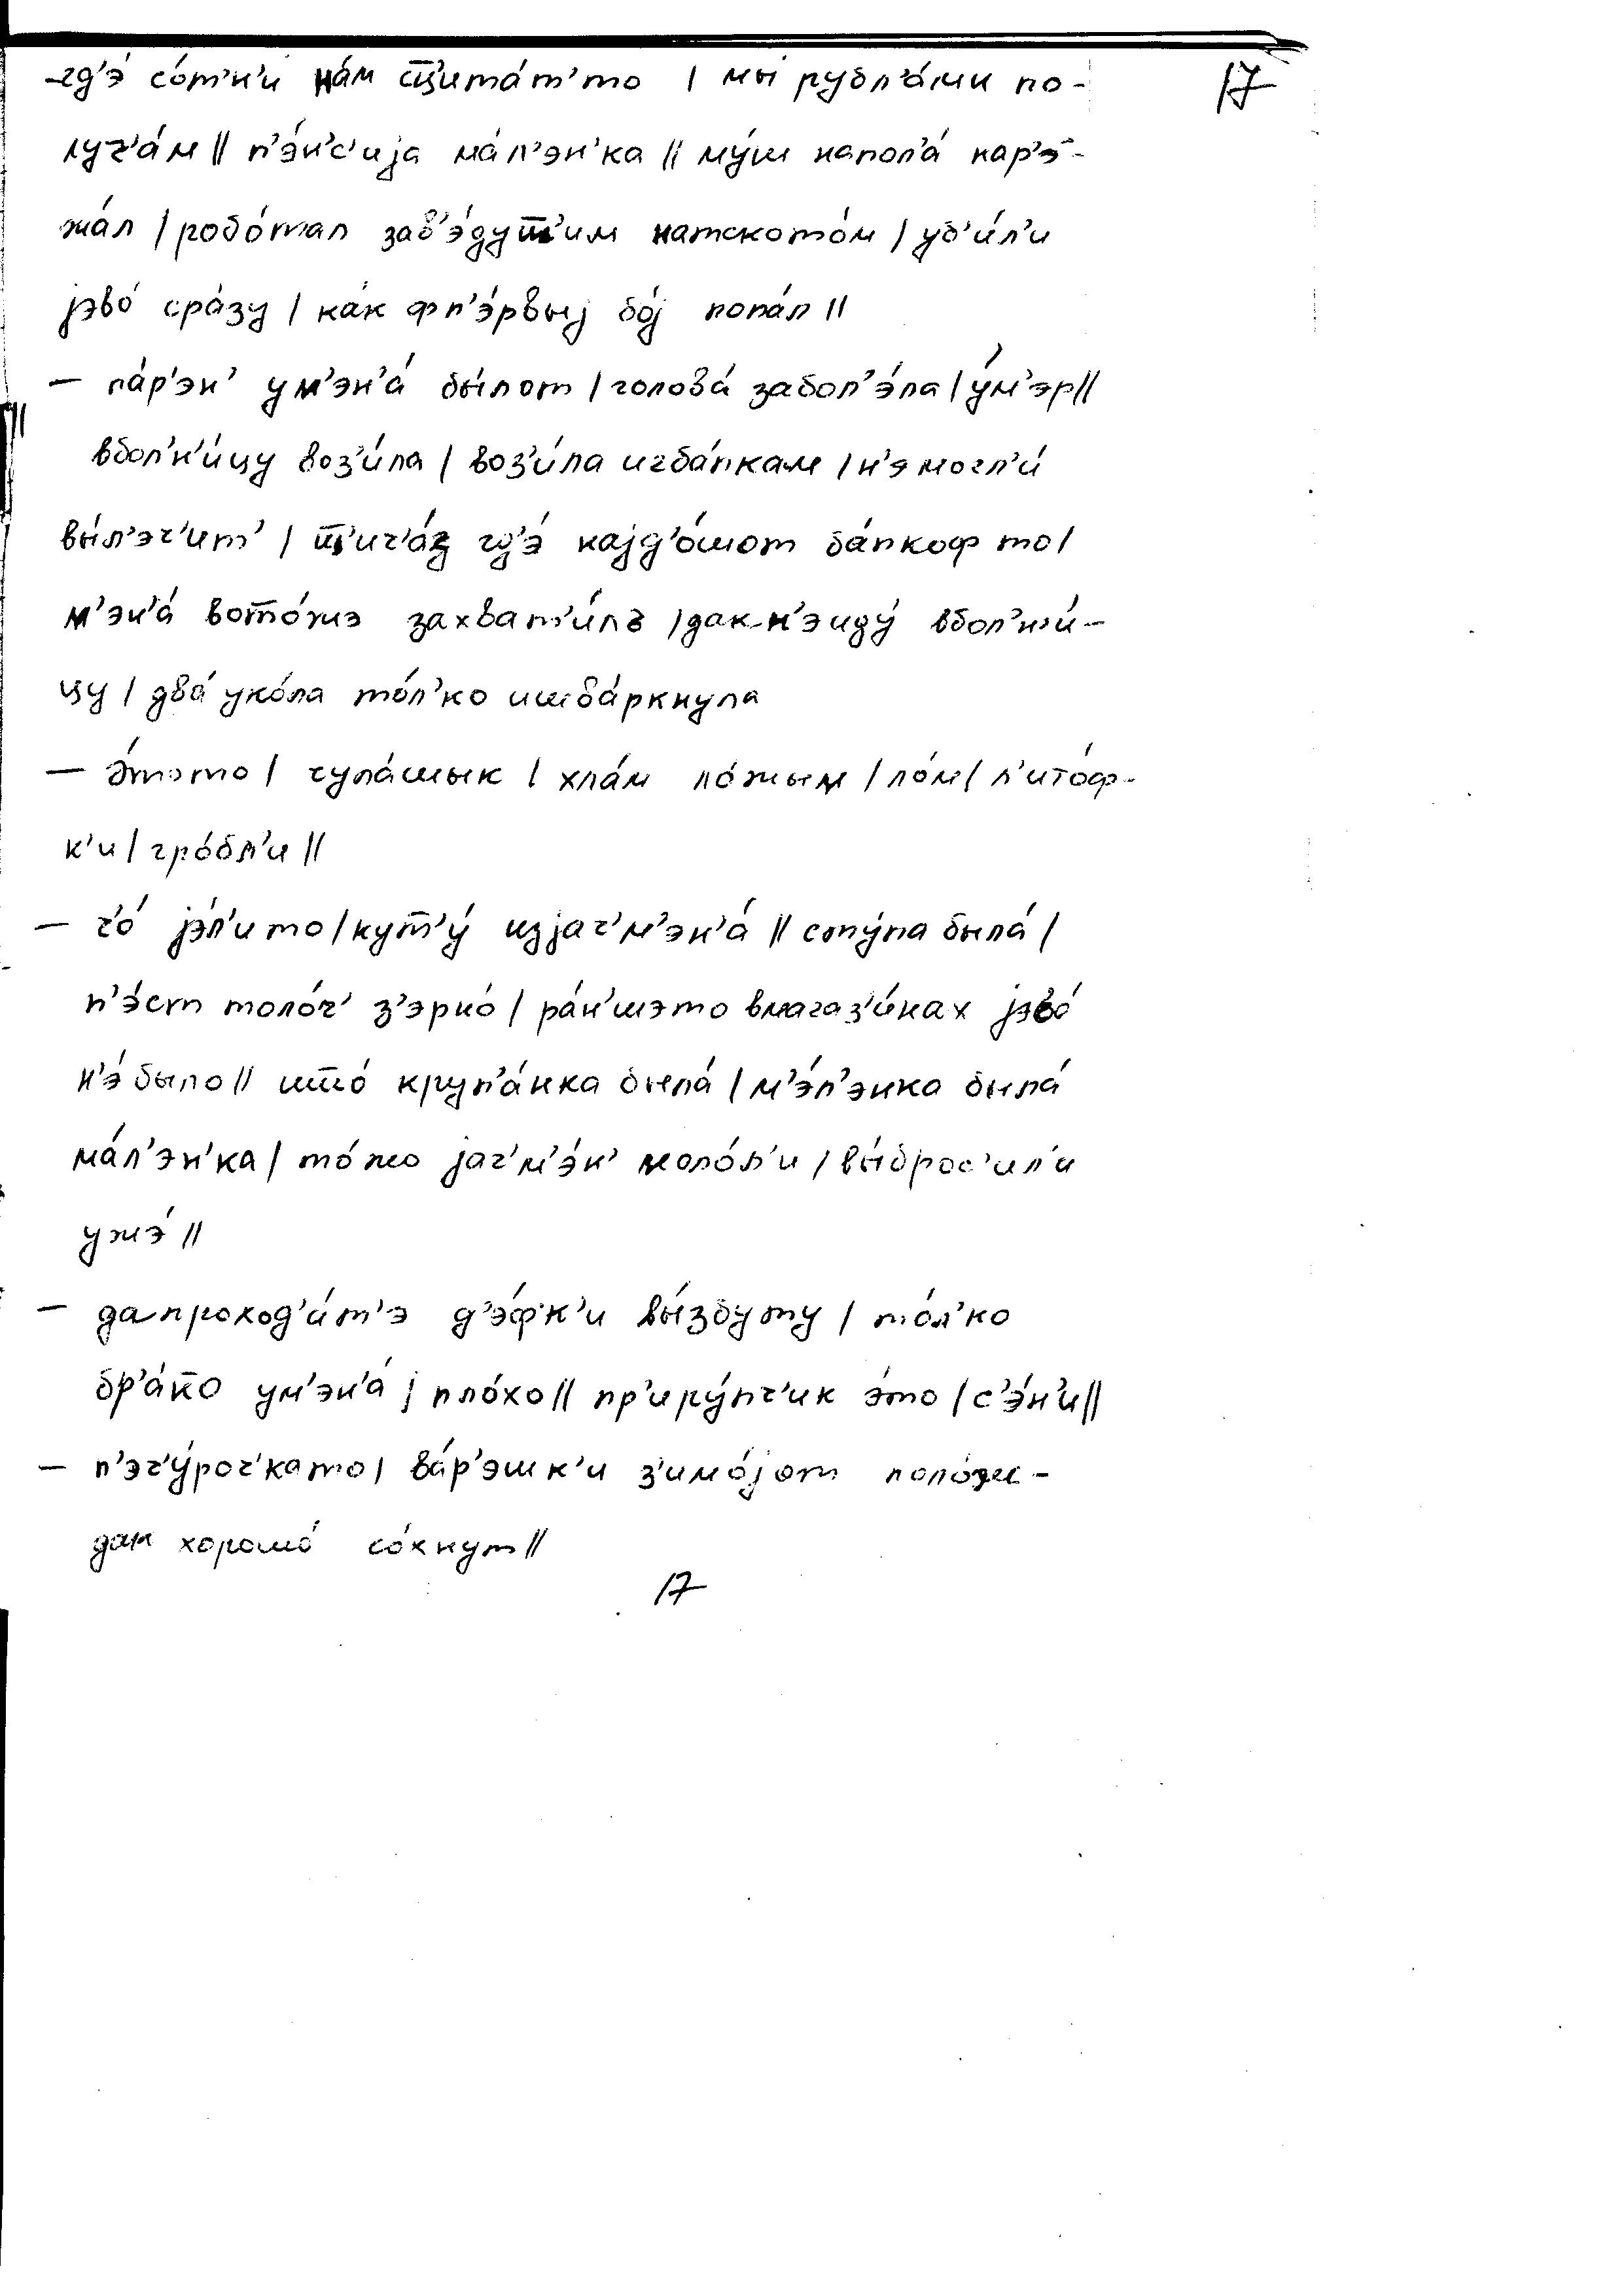 -гд'э́ со́т'н'и на́м сш̅'ита́т'то | мы́ рубл'а́ми по-
17
луч'а́м || п'э́н'с'иjа ма́л'эн'ка || му́ш напол'а́ нар'э-
жа́л | робо́тал зав'э́душ̅'им натското́м | уб'и́л'и
jэво́ сра́зу | ка́к фп'э́рвыj бо́j попа́л ||
— па́р'эн' ум'эн'а́ бы́лот | голова́ забол'э́ла | у́м'эр ||
вбол'н'и́цу воз'и́ла | воз'и́ла игба́пкам | н'эмогл'и́
вы́л'эч'ит' | ш̅'ич'а́з гд'э́ наjд'о́шот ба́пкоф то |
м'эн'а́ вот̅о́жэ захват'и́лъ | дак н'эиду́ вбол'н'и́-
цу | два́ уко́ла то́л'ко ишба́ркнула
— э́тото | чула́шык | хла́м ло́жым | ло́м | л'ито́ф-
к'и | гро́бл'и ||
— ч'о́ jэ́л'ито | кут̅'у́ изjач'м'эн'а́ || сту́па была́ |
п'э́ст толо́ч' з'эрно́ | ра́н'шэто вмагаз'и́нах jэво́
н'э́было || шт̅о́ круп'а́нка была́ | м'э́л'энка была́
ма́л'эн'ка | то́жо jач'м'э́н' моло́л'и | вы́брос'ил'и
ужэ́ ||
— дапроход'а́т'э д'э́фк'и вы́збуту | то́л'ко
бр'а́т̅о ум'эн'а́ | пло́хо || пр'иру́пч'ик э́то | с'э́н'и ||
— п'эч'у́роч'като | ва́р'эшк'и з'имо́jот поло́ж-
дак хорошо́ со́хнут ||
17